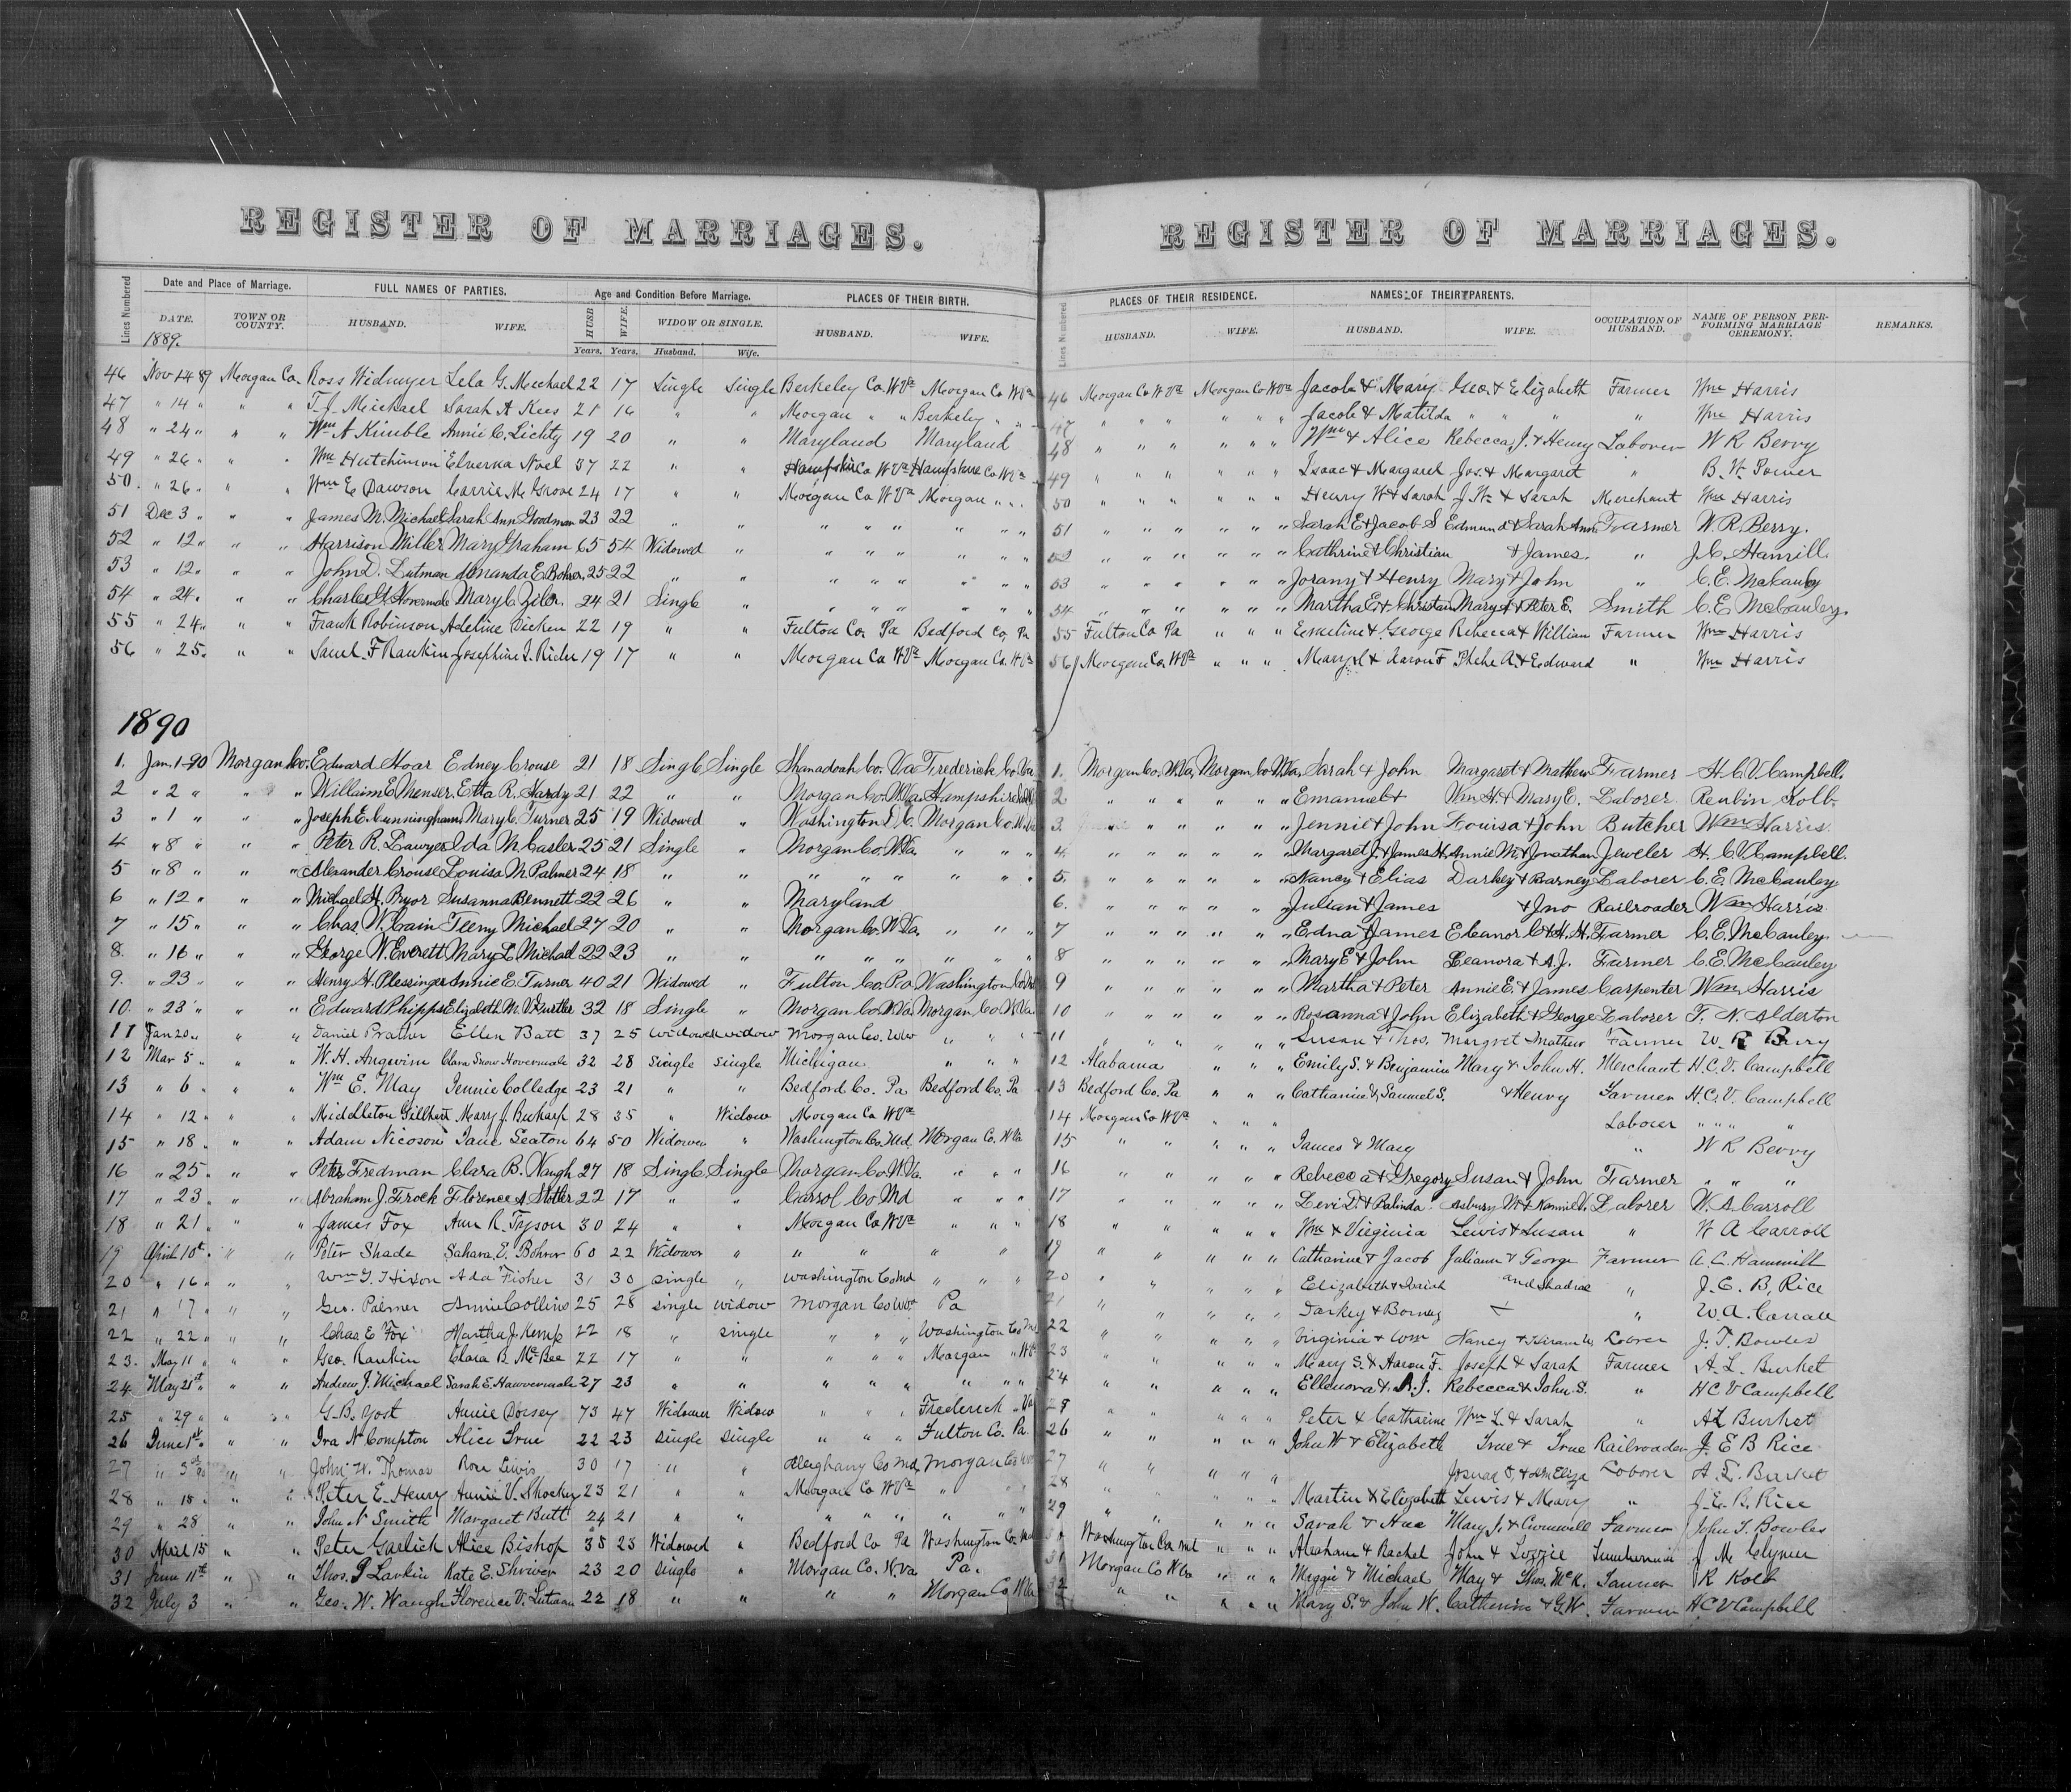 REGISTER OF MARRIAGES.
Lines Numbered
Date and Place of Marriage.
FULL NAMES OF PARTIES.
Age and Condition Before Marriage.
PLACES OF THEIR BIRTH.
DATE.
TOWN OR COUNTY.
HUSBAND.
WIFE.
HUSB
WIFE.
WIDOW OR SINGLE.
HUSBAND.
WIFE.
1889.
Years,
Years,
Husband.
Wife.
46 Nov 14 89 Morgan Co. Ross Widmyer Lela G. Michael 22 17 Single Single Berkeley Co. W Va Morgan Co. W Va
47 " 14 " " " T. J. Michael Sarah A Kees 21 16 " " Morgan " " Berkeley " "
48 " 24 " " " Wm A Kimble Annie C. Lichty 19 20 " " Maryland Maryland
49 " 26 " " " Wm Hutchinson Elverka Noel 37 22 " " Hampshire Co W Va Hampshire Co W Va
50 " 26 " " " Wm E Dawson Carrie M. Grove 24 17 " " Morgan Co W Va Morgan " "
51 Dec 3 " " " James M. Michael Sarah Ann Goodman 23 22 " " " " " " " "
52 " 12 " " " Harrison Miller Mary Graham 65 54 Widowed " " " " " " "
53 " 12 " " " John D. Lutman Amanda E Bohrer 25 22 " " " " " " " "
54 " 24 " " " Charles G. Hovermale Mary C. Ziler 24 21 Single " " " " " " "
55 " 24 " " " Frank Robinson Adeline Dicken 22 19 " " Fulton Co. Pa Bedford Co, Pa
56 " 25 " " " Saml. F Rankin Josephine I. Rider 19 17 " " Morgan Co W Va Morgan Co. W Va
1890
1. Jan. 1-90 Morgan Co. Edward Hoar Edney Crouse 21 18 Single Single Shanadoah Co. Va Frederick Co. Va.
2 " 2 " " " William E. Menser Etta R. Hardy 21 22 " " Morgan Co. W.Va. Hampshire
3 " 1 " " " Joseph E. Cunningham Mary C. Turner 25 19 Widowed " Washington D.C. Morgan Co. W.Va
4 " 8 " " " Peter R. Lawyer Ida M. Casler 25 21 Single " Morgan Co. W.Va. " " "
5 " 8 " " " Alexander Crouse Louisa M. Palmer 24 18 " " " " " " " "
6 " 12 " " " Michael H. Pryor Susanna Bennett 22 26 " " Maryland
7 " 15 " " " Chas. W. Cain Teeny Michael 27 20 " " Morgan Co. W.Va. " " "
8. " 16 " " " George W. Everett Mary L. Michael 22 23 " " " " " " " "
9. " 23 " " " Henry H. Plessinger Annie E. Turner 40 21 Widowed " Fulton Co. Pa Washington Co. Md
10. " 23 " " " Edward Phipps Elizabeth M. 32 18 Single " Morgan Co. W.Va. Morgan Co. W.Va.
11 Jan 20 " " " Daniel Prather Ellen Batt 37 25 Widowed Widow Morgan Co. W.Va " " "
12 Mar 5 " " " W. H. Angevim Clara Snow Hovermale 32 28 Single Single Michigan " " "
13 " 6 " " " Wm E. May Jennie Colledge 23 21 " " Bedford Co. Pa. Bedford Co. Pa
14 " 12 " " " Middleton Mary J. 28 35 " Widow Morgan Co W Va
15 " 18 " " " Adam Nicoson Jane Seaton 64 50 Widower " Washington Co. Md. Morgan Co. W.Va
16 " 25 " " " Peter Fredman Clara B. Waugh 27 18 Single Single Morgan Co. W.Va. " " "
17 " 23 " " " Abraham J. Frock Florence A Stotler 22 17 " " Carrol Co Md " " "
18 " 21 " " " James Fox Ann R. Tyson 30 24 " " Morgan Co W Va " " "
19 April 10th " " Peter Shade Sahara E. Bohrer 60 22 Widower " " " " "
20 " 16 " " " Wm G. Hixon Ada Fisher 31 30 Single " Washington Co Md " " "
21 " 17 " " " Geo. Palmer Annie Collins 25 28 Single Widow Morgan Co W Va Pa
22 " 22 " " " Chas E Fox Martha J. Kemp 22 18 " Single " " " Washington Co Md
23. May 11 " " " Geo. Rankin Clara B. McBee 22 17 " " " " " Morgan " W Va
24 May 21st " " " Andrew J. Michael Sarah E. Hawvermale 27 23 " " " " " " " "
25 " 29 " " " G. B. Yost Annie Dorsey 73 47 Widower Widow " " " Frederick " Va
26 June 1st " " " Ira N Compton Alice True 22 23 Single Single " " " Fulton Co. Pa.
27 " " " " John W. Thomas Rose Lewis 30 17 " " Alleghany Co Md. Morgan Co
28 " 15 " " " Peter E. Henry Annie V. Shockey 23 21 " " Morgan Co W Va " "
29 " 28 " " " John N Smith Margaret Butt 24 21 " " " " " " "
30 April 15 " " Peter Garlich Alice Bishop 35 23 Widowed " Bedford Co Pa Washington Co. Md
31 June 11th " " Thos. P Larkin Kate E. Shriver 23 20 Single " Morgan Co. W.Va Pa.
32 July 3 " " Geo. W. Waugh Florence V. Lutman 22 18 " " " " Morgan Co W.Va
REGISTER OF MARRIAGES.
Lines Numbered
PLACES OF THEIR RESIDENCE.
NAMES OF THEIR PARENTS.
HUSBAND.
WIFE.
HUSBAND.
WIFE.
OCCUPATION OF HUSBAND.
NAME OF PERSON PERFORMING MARRIAGE CEREMONY.
REMARKS.
46 Morgan Co W Va Morgan Co W Va Jacob & Mary Geo. & Elizabeth Farmer Wm Harris
47 " " " " " " Jacob & Matilda " " " " Wm Harris
48 " " " " " " Wm & Alice Rebecca J. & Henry Laborer W R Berry
49 " " " " " " Isaac & Margaret Jos. & Margaret " B. W.
50 " " " " " " Henry W & Sarah J. W. & Sarah Merchant Wm Harris
51 " " " " " " Sarah E & Jacob S Edmund & Sarah Ann Farmer W. R. Berry.
52 " " " " " " Cathrine & Christian & James. " J. C. Hamill.
53 " " " " " " & Henry Mary & John " C. E. McCauley
54 " " " " " " Martha E & Christian Mary A & Peter E. Smith C. E McCauley.
55 Fulton Co Pa " " " Emeline & George Rebecca & William Farmer Wm Harris
56 Morgan Co. W Va " " " Mary & Aaron F Phebe A. & Edward " Wm Harris
1. Morgan Co. W.Va. Morgan Co W.Va. Sarah & John Margaret & Mathew Farmer H. C. V. Campbell.
2 " " " " " " Emanuel & Wm H. & Mary E. Laborer Reubin Kolb.
3. " " " " " Jennie & John Louisa & John Butcher Wm Harris.
4. " " " " " " Margaret J. & James H. Annie M. & Jonathan Jeweler H. C. V. Campbell.
5. " " " " " " Nancy & Elias Darkey & Barney Laborer C. E. McCauley
6. " " " " " " Julian & James & Jno Railroader Wm Harris.
7 " " " " " " Edna & James Eleanor C. & H. H. Farmer C. E. McCauley
8 " " " " " " Mary E & John Leanora & A J. Farmer C. E. McCauley
9 " " " " " " Martha & Peter Annie E. & James Carpenter Wm Harris
10 " " " " " " Rosanna & John Elizabeth & George Laborer T. N. Alderton
11 " " " " " " Susan & Thos. Margret Mathew Farmer W. R Berry
12 Alabama " " " Emily S. & Benjamin Mary & John H. Merchant H. C. V. Campbell
13 Bedford Co. Pa " " " Catharine & Samuel S. & Henry Farmer H. C. V. Campbell
14 Morgan Co W Va " " " Laborer " " " "
15 " " " " " James & Mary " W R Berry
16 " " " " " Rebecca & Gregory Susan & John Farmer " " "
17 " " " " " Levi D. & Palinda Asbury M & Nannie V. Laborer W. A. Carroll
18 " " " " " Wm & Virginia Lewis & Susan " W A Carroll
19 " " " " " Catharine & Jacob Juliann & George Farmer A. C. Hammill
20 " " " " " Elizabeth & Isaiah and Shadrac " J. E. B. Rice
21 " " " " " Darkey & Barney & " W. A. Carroll
22 " " " " " Virginia & Wm Nancy & Hiram Laborer J. T. Bowles
23 " " " " " Mary S. & Aaron F. Joseph & Sarah Farmer A. L. Burket
24 " " " " " Ellenora & A. J. Rebecca & John S. " H C V Campbell
25 " " " " " Peter & Catharine Wm L. & Sarah " A L Burket
26 " " " " " John W & Elizabeth True & True Railroader J. E B Rice
27 " " " " " Laborer A. L. Burket
28 " " " " " Martin & Elizabeth Lewis & Mary " J. E. B. Rice
29 " " " " " Sarah & Mary J. & Cromwell Farmer John T. Bowles
30 Washington Co Md " " " Abraham & Rachel John & Lizzie J Mc Clymer
31 Morgan Co W Va " " " Maggie & Michael May & Thos. McK. Tanner R Kolb
32 " " " " " Mary S. & John W. Catherine & G. W. Farmer H C V Campbell